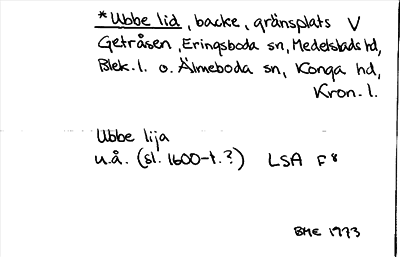 *Ubbe lid, backe, gränsplats V
Getråsen, Eringsboda sn, Medelstads hd,
Blek. l. o. Älmeboda sn, Konga hd,
Kron. l.
Ubbe lija
u.å. (sl. 1600-t.?) LSA F 8
BME 1973